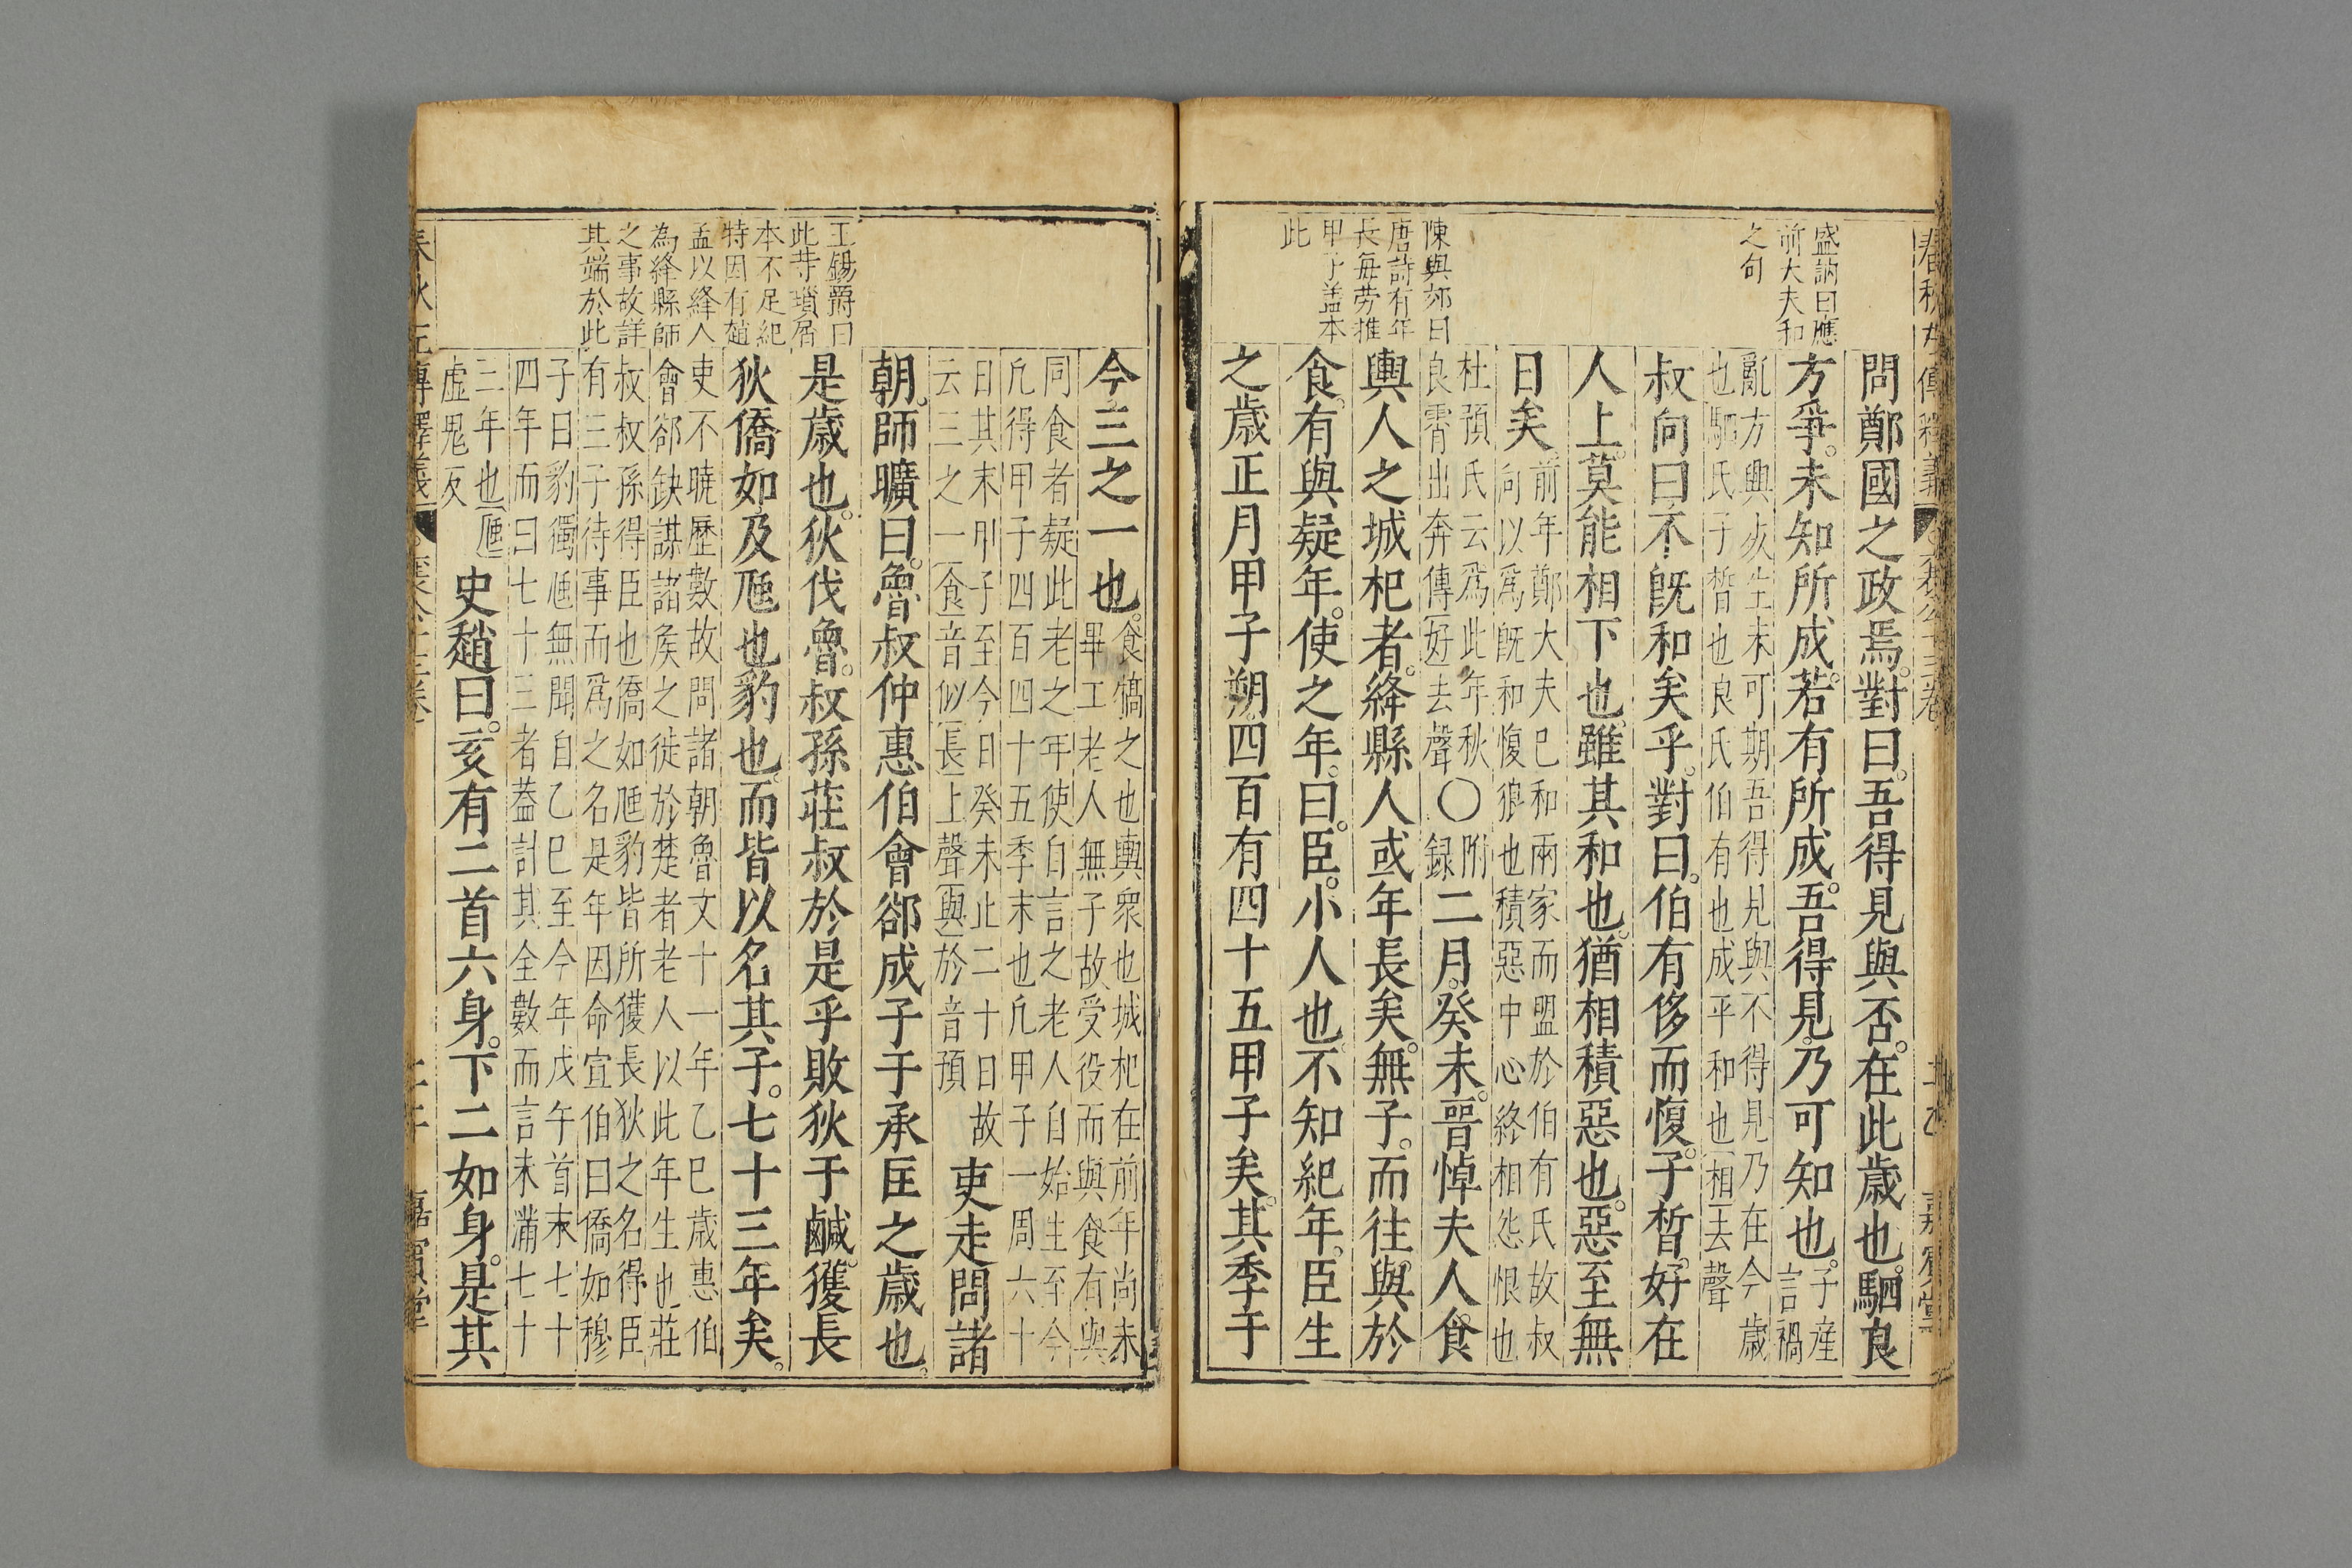 盛訥曰應
前大夫和
之句
陳與郊曰
唐詩有年
長每勞推
甲子蓋本
此
問鄭國之政焉對曰吾得見與否在此歲也駟良
方爭未知所成若有所成吾得見乃可知也子産言禍
亂方興災生未可期吾得見與不得見乃在今歲
也駟氏子晳也良氏伯有也成平和也相去聲
叔向曰不既和矣乎對曰伯有侈而愎子晳好在
人上莫能相下也雖其和也猶相積惡也惡至無
日矣前年鄭大夫已和兩家而盟於伯有氏故叔
向以爲既和愎狼也積惡中心終相怨恨也
杜預氏云爲此年秋
良霄出奔傳好去聲〇附錄二月癸未晉悼夫人食
輿人之城杞者絳縣人或年長矣無子而往與於
食有與疑年使之年曰臣小人也不知紀年臣生
之歲正月甲子朔四百有四十五甲子矣其季于
王錫爵曰
此等瑣屑
本不足紀
特因有趙
孟以絳人
為絳縣師
之事故詳
其端於此
今三之一也食犒之也輿衆也城杞在前年尚未
畢工老人無子故受役而與食有與
同食者疑此老之年使自言之老人自始生至今
凡得甲子四百四十五季末也凡甲子一周六十
日其末甲子至今日癸未止二十日故
云三之一食音似長上聲與於音預吏走問諸
朝師曠曰魯叔仲惠伯會郤成子于承匡之歲也
是歲也狄伐魯叔孫莊叔於是乎敗狄于鹹獲長
狄僑如及虺也豹也而皆以名其子七十三年矣
吏不曉歷數故問諸朝魯文十一年乙巳歲惠伯
會郤缺謀諸侯之徒於楚者老人以此年生也莊
叔叔孫得臣也僑如虺豹皆所獲長狄之名得臣
有三子待事而爲之名是年因命宣伯曰僑如穆
子曰豹獨虺無聞自乙巳至今年戊午首末七十
四年而曰七十三者葢計其全數而言未滿七十
二年也虺
虛鬼反史趙曰亥有二首六身下二如身是其